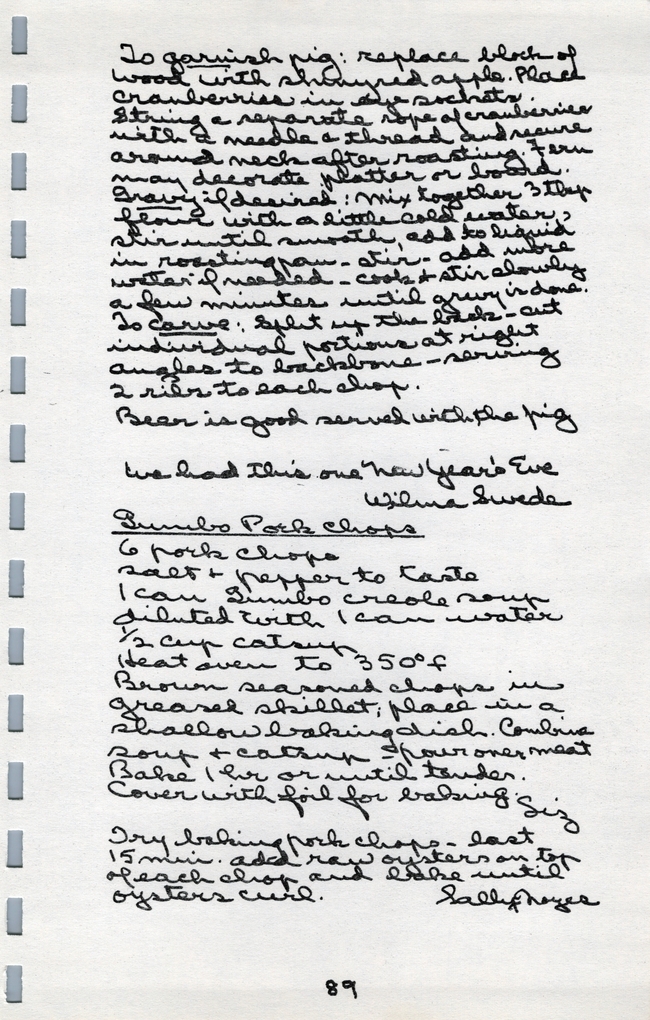 To garnish pig: replace block of
wood with shiny red apple. Place
cranberries in eye sockets.
String a separate rope of cranberries
with a needle & thread and secure
around neck after roasting. Fern
may decorate platter or board.
Gravy if desired: Mix together 3 tbsp
flour with a little cold water,
stir until smooth, add to liquid
in roasting pan - stir - add more
water if needed - cook + stir slowly
a few minutes until gravy is done.
To carve: Split up the back - cut
individual portions at right
angles to backbone - serving
2 ribs to each chop.
Beer is good served with the pig
We had this one New Year's Eve
Wilma Swede
Gumbo Pork Chops
6 pork chops
salt + pepper to taste
1 can Gumbo creole soup
diluted with 1 can water
1/2 cup catsup
Heat oven to 350°F
Brown seasoned chops in
greased skillet; place in a
shallow baking dish. Combine
soup + catsup - pour over meat
Bake 1 hr or until tender.
Cover with foil for baking.
Siz
Try baking pork chops - last
15 min. add raw oysters on top
of each chop and bake until
oysters curl. Sally Noyes
89